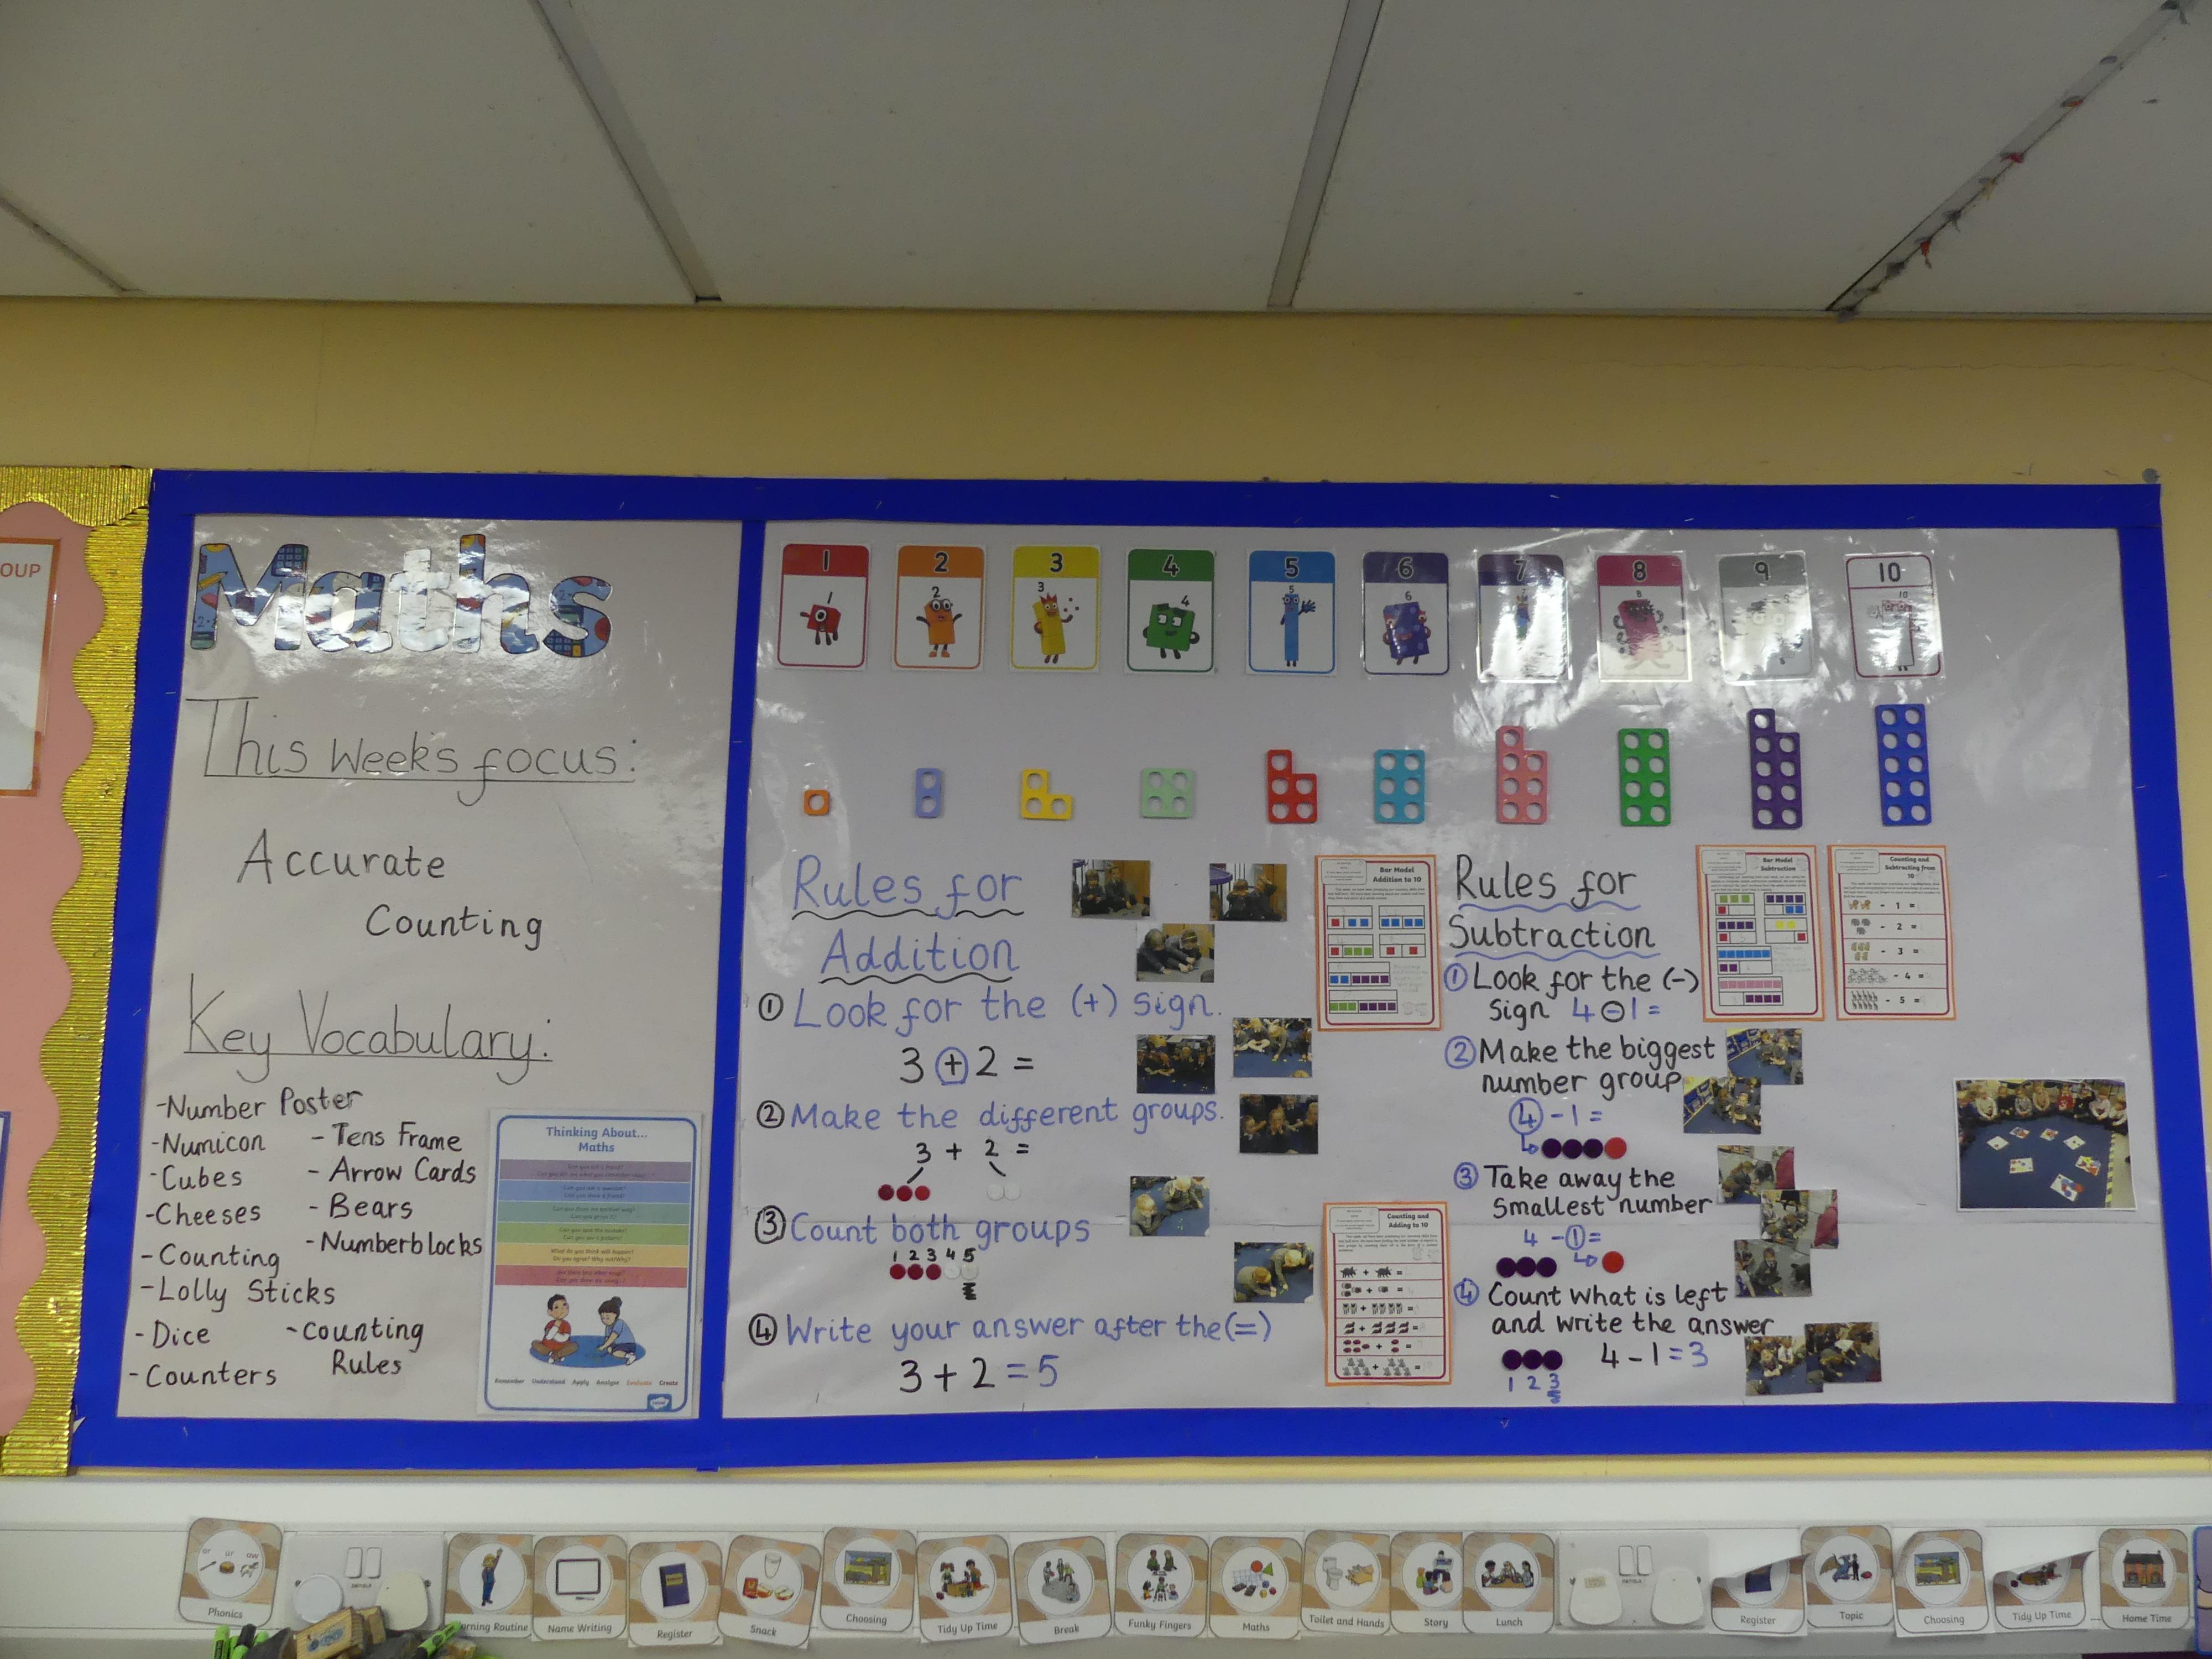 OUP
Maths
This Weeks focus:
Accurate
Counting
Key Vocabulary:
-Number Poster
-Numicon
-Cubes
-Cheeses
-Counting
-Lolly Sticks
-Dice
-Counters
-Tens Frame
-Arrow Cards
-Bears
-Numberblocks
-Counting
Rules
Thinking About...
Maths
What do you think will happen?
Remember Understand Apply Analyse Evaluate Create
1 2 3 4 5 6 7 8 9 10
1 2 3 4 5 6 8 10
Rules for
Addition
① Look for the (+) sign.
3 + 2 =
② Make the different groups.
3 + 2 =
③ Count both groups
1 2 3 4 5
④ Write your answer after the (=)
3 + 2 = 5
Bar Model
Addition to 10
Counting and
Adding to 10
Rules for
Subtraction
① Look for the (-)
sign 4 - 1 =
② Make the biggest
number group
4 - 1 =
③ Take away the
smallest number
4 - 1 =
④ Count what is left
and write the answer
4 - 1 = 3
1 2 3
Bar Model
Subtraction
Counting and
Subtracting from
10
- 1 =
- 2 =
- 3 =
- 4 =
- 5 =
ur ur ow
Phonics
orning Routine
Name Writing
Register
Snack
Choosing
Tidy Up Time
Break
Funky Fingers
Maths
Toilet and Hands
Story
Lunch
Register
Topic
Choosing
Tidy Up Time
Home Time